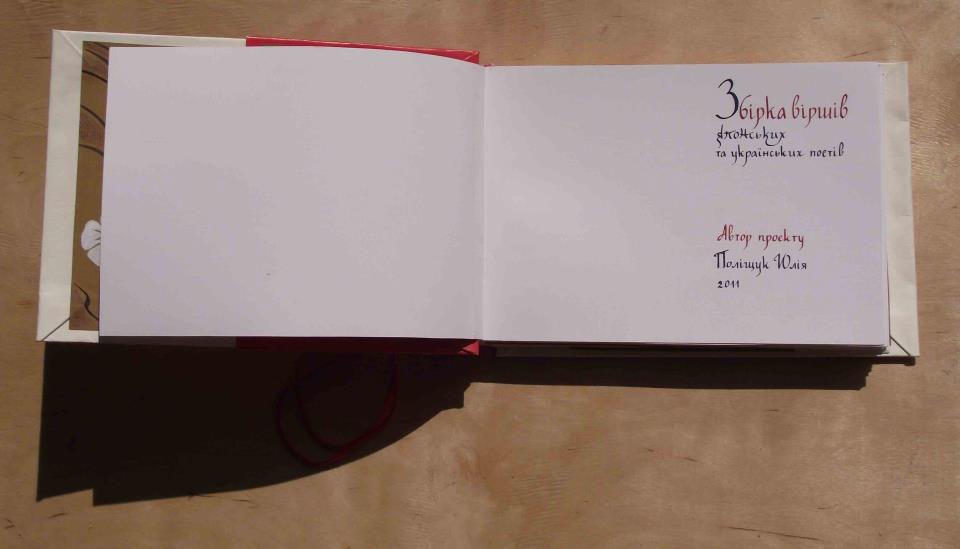 Збірка віршів
японських
та українських поетів
Автор проєкту
Поліщук Юлія
2011